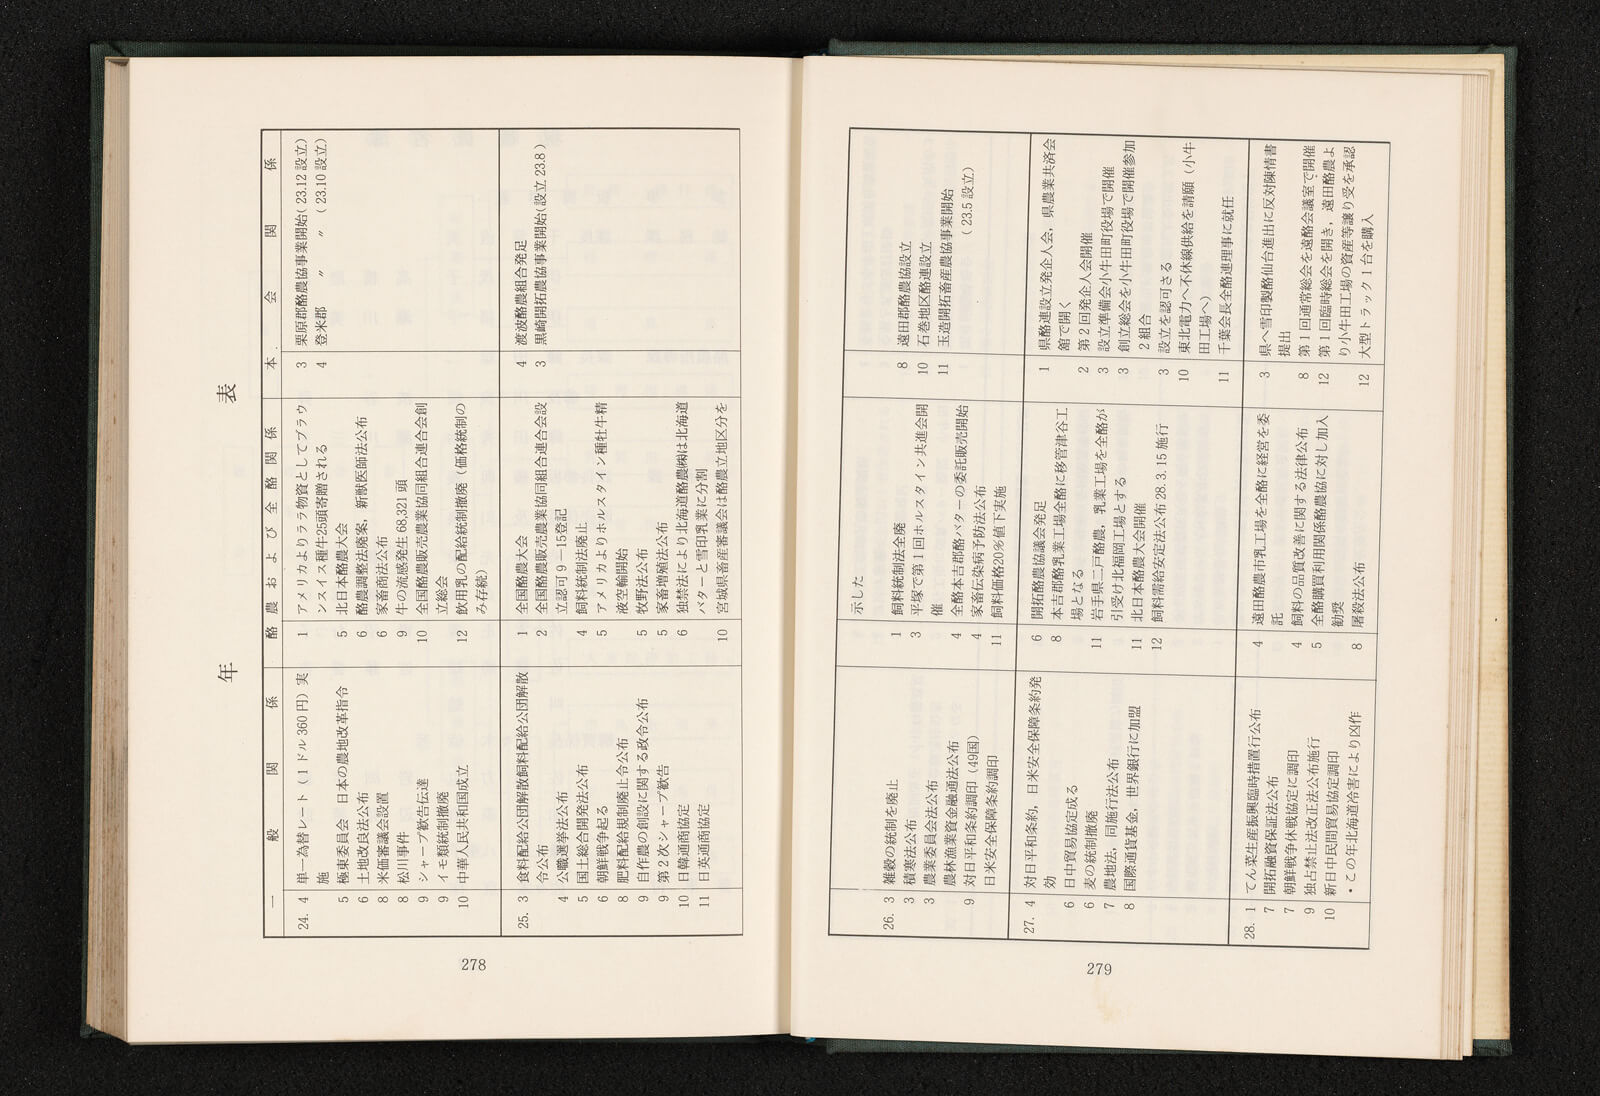 年表
一般関係
24. 4 単一為替レート（1ドル360円）実
施
5 極東委員会　日本の農地改革指令
6 土地改良法公布
8 米価審議会設置
8 松川事件
9 シャープ勧告伝達
9 イモ類統制撤廃
10 中華人民共和国成立
酪農および全酪関係
1 アメリカよりララ物資としてブラウ
ンスイス種牛25頭寄贈される
5 北日本酪農大会
6 酪農調整法廃案，新獣医師法公布
6 家畜商法公布
9 牛の流感発生68,321頭
10 全国酪農販売農業協同組合連合会創
立総会
12 飲用乳の配給統制撤廃（価格統制の
み存続）
本会関係
3 栗原郡酪農協事業開始（23.12設立）
4 登米郡　〃　〃　（23.10設立）
25. 3 食料配給公団解散飼料配給公団解散
令公布
4 公職選挙法公布
5 国土総合開発法公布
6 朝鮮戦争起る
8 肥料配給規制廃止令公布
9 自作農の創設に関する政令公布
9 第2次シャープ勧告
10 日韓通商協定
11 日英通商協定
1 全国酪農大会
2 全国酪農販売農業協同組合連合会設
立認可9－15登記
4 飼料統制法廃止
5 アメリカよりホルスタイン種牡牛精
液空輸開始
5 牧野法公布
5 家畜増殖法公布
6 独禁法により北海道酪農㈱は北海道
バターと雪印乳業に分割
10 宮城県畜産審議会は酪農立地区分を
4 渡波酪農組合発足
3 黒崎開拓農協事業開始（設立23.8）
278
示した
26. 3 雑穀の統制を廃止
3 積寒法公布
3 農業委員会法公布
農林漁業資金融通法公布
9 対日平和条約調印（49国）
日米安全保障条約調印
1 飼料統制法全廃
3 平塚で第1回ホルスタイン共進会開
催
4 全酪本吉郡酪バターの委託販売開始
4 家畜伝染病予防法公布
11 飼料価格20％値下実施
8 遠田郡酪農協設立
10 石巻地区酪連設立
11 玉造開拓畜産農協事業開始
（23.5設立）
27. 4 対日平和条約，日米安全保障条約発
効
6 日中貿易協定成る
6 麦の統制撤廃
7 農地法，同施行法公布
8 国際通貨基金，世界銀行に加盟
6 開拓酪農協議会発足
8 本吉郡酪乳業工場全酪に移管津谷工
場となる
11 岩手県二戸酪農，乳業工場を全酪が
引受け北福岡工場とする
11 北日本酪農大会開催
12 飼料需給安定法公布28.3.15施行
1 県酪連設立発企人会，県農業共済会
館で開く
2 第2回発企人会開催
3 設立準備会小牛田町役場で開催
3 創立総会を小牛田町役場で開催参加
2組合
3 設立を認可さる
10 東北電力へ不休線供給を請願（小牛
田工場へ）
11 千葉会長全酪連理事に就任
28. 1 てん菜生産振興臨時措置行公布
7 開拓融資保証法公布
7 朝鮮戦争休戦協定に調印
9 独占禁止法改正法公布施行
10 新日中民間貿易協定調印
・この年北海道冷害により凶作
4 遠田酪農市乳工場を全酪に経営を委
託
4 飼料の品質改善に関する法律公布
5 全酪購買利用関係酪農協に対し加入
勧奨
8 屠殺法公布
3 県へ雪印製酪仙台進出に反対陳情書
提出
8 第1回通常総会を遠酪会議室で開催
12 第1回臨時総会を開き，遠田酪農よ
り小牛田工場の資産等譲り受を承認
12 大型トラック1台を購入
279